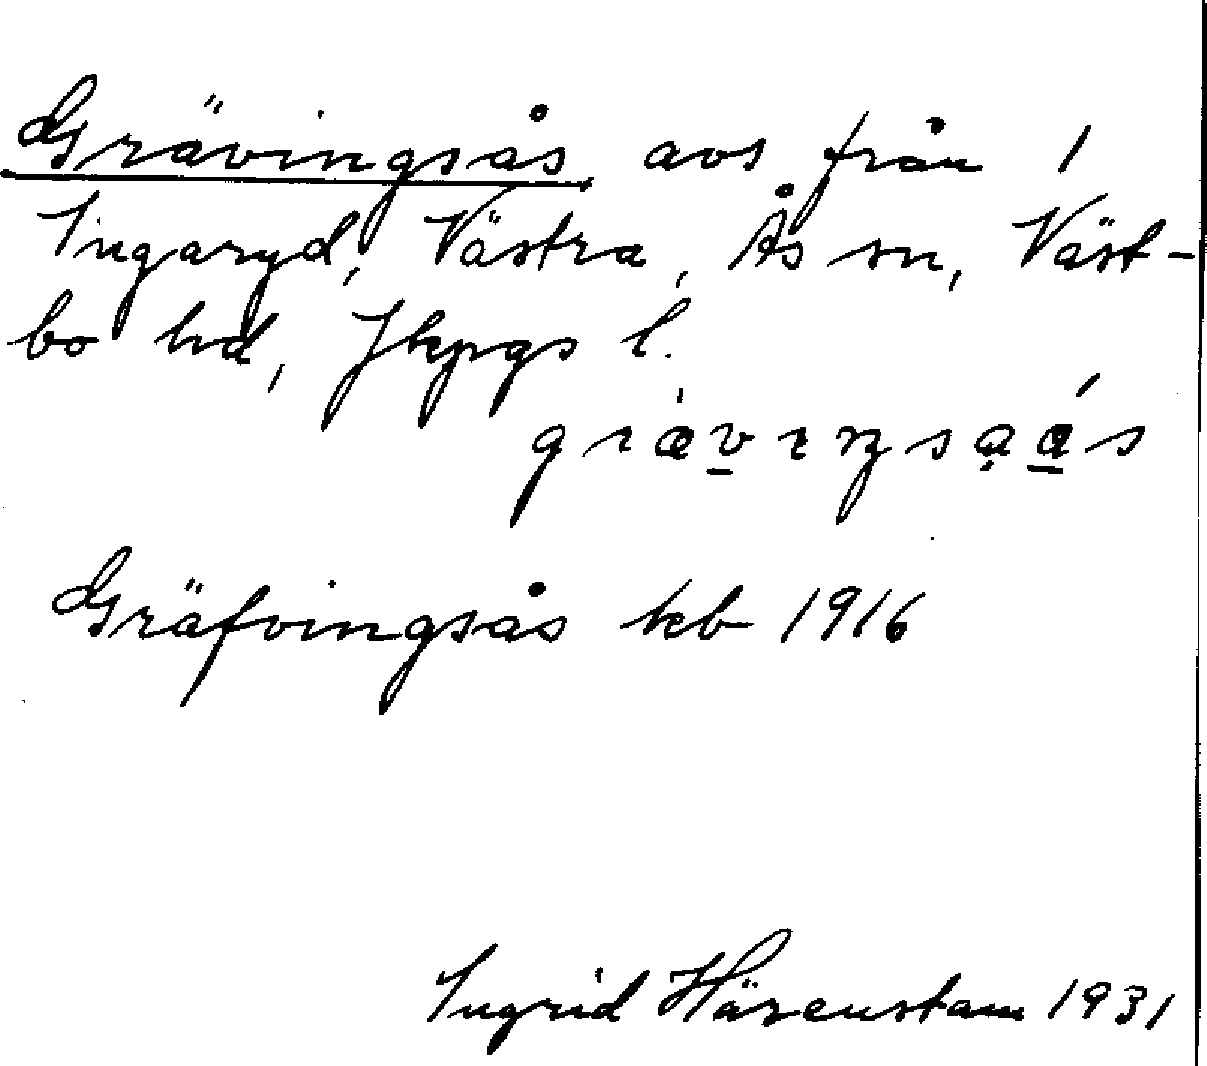 Grävingsås avs från 1
Ingaryd, Västra, Ås sn, Väst-
bo hd, Jkpgs l.
Gräfvingsås kb 1916
Ingrid Härenstam 1931